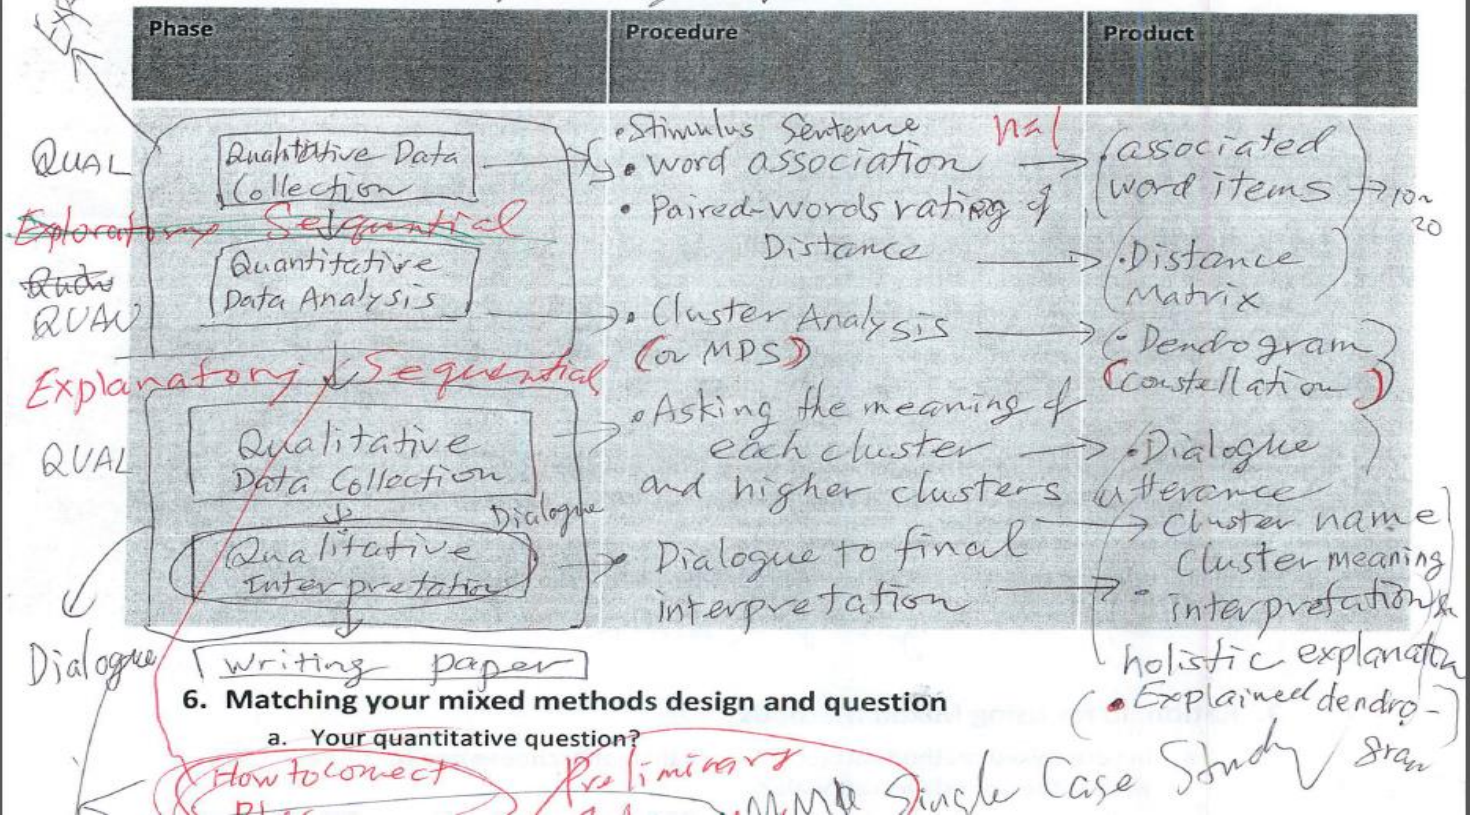 Phase Procedure Product
QUAL
Qualitative Data
Collection
•Stimulus Sentence
• word association
n=1
• Paired-words rating of
Distance
•associated
word items
→10~
20
•Distance
Matrix
Exploratory Sequential
Quantitative
Data Analysis
QUAN
• Cluster Analysis
(or MDS)
• Dendrogram
(constellation)
Explanatory Sequential
QUAL
Qualitative
Data Collection
• Asking the meaning of
each cluster
and higher clusters
•Dialogue
utterance
Dialogue
Qualitative
Interpretation
• Dialogue to final
interpretation
Cluster name
Cluster meaning
interpretation
holistic explanation
• Explained dendro-
gram
Dialogue
Writing paper
6. Matching your mixed methods design and question
a. Your quantitative question?
How to connect
Preliminary
Single Case Study